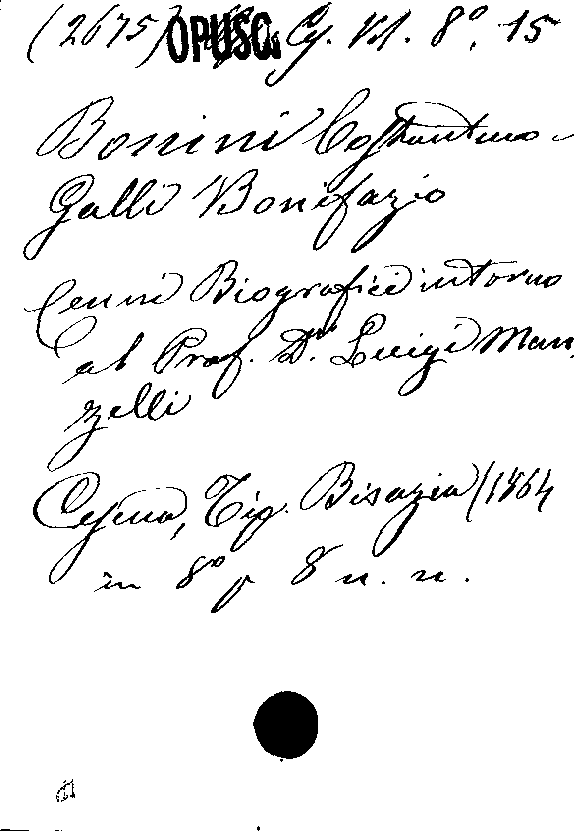 (2675) OPUSC. Cg. Vol. 8º. 15
Bonini Costantino -
Galli Bonifazio
Cenni Biografici intorno
al Prof. Dr. Luigi Man
zelli
Cesena, Tip. Bisazia (1864
in 8º p 8 n. n.